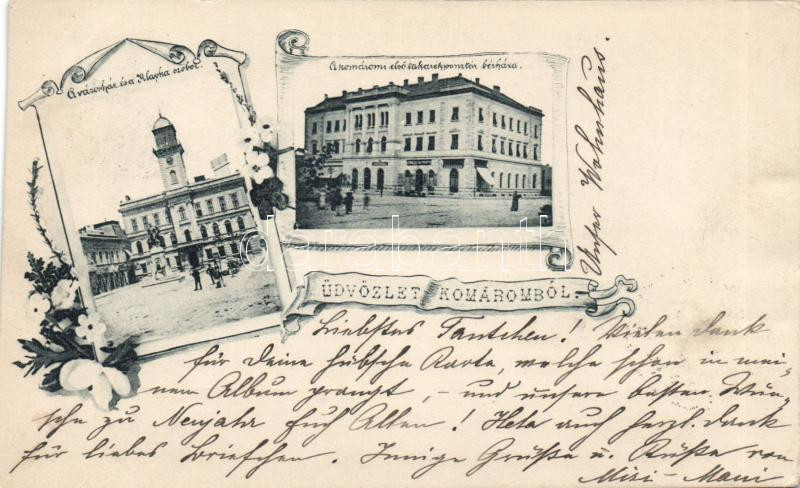 A városház és a Klapka szobor.
A komáromi első takarékpénztár bérháza.
Unser Wohnhaus.
ÜDVÖZLET KOMÁROMBÓL.
Liebstes Tantchen! Vielen dank
für Deine hübsche Karte, welche schon in mei-
nem Album prangt, - und unsere besten Wün-
sche zu Neujahr Euch Allen! Heta auch herzl. dank
für liebes Briefchen. Innige Grüße u. Küße von
Misi - Mani
darabanth